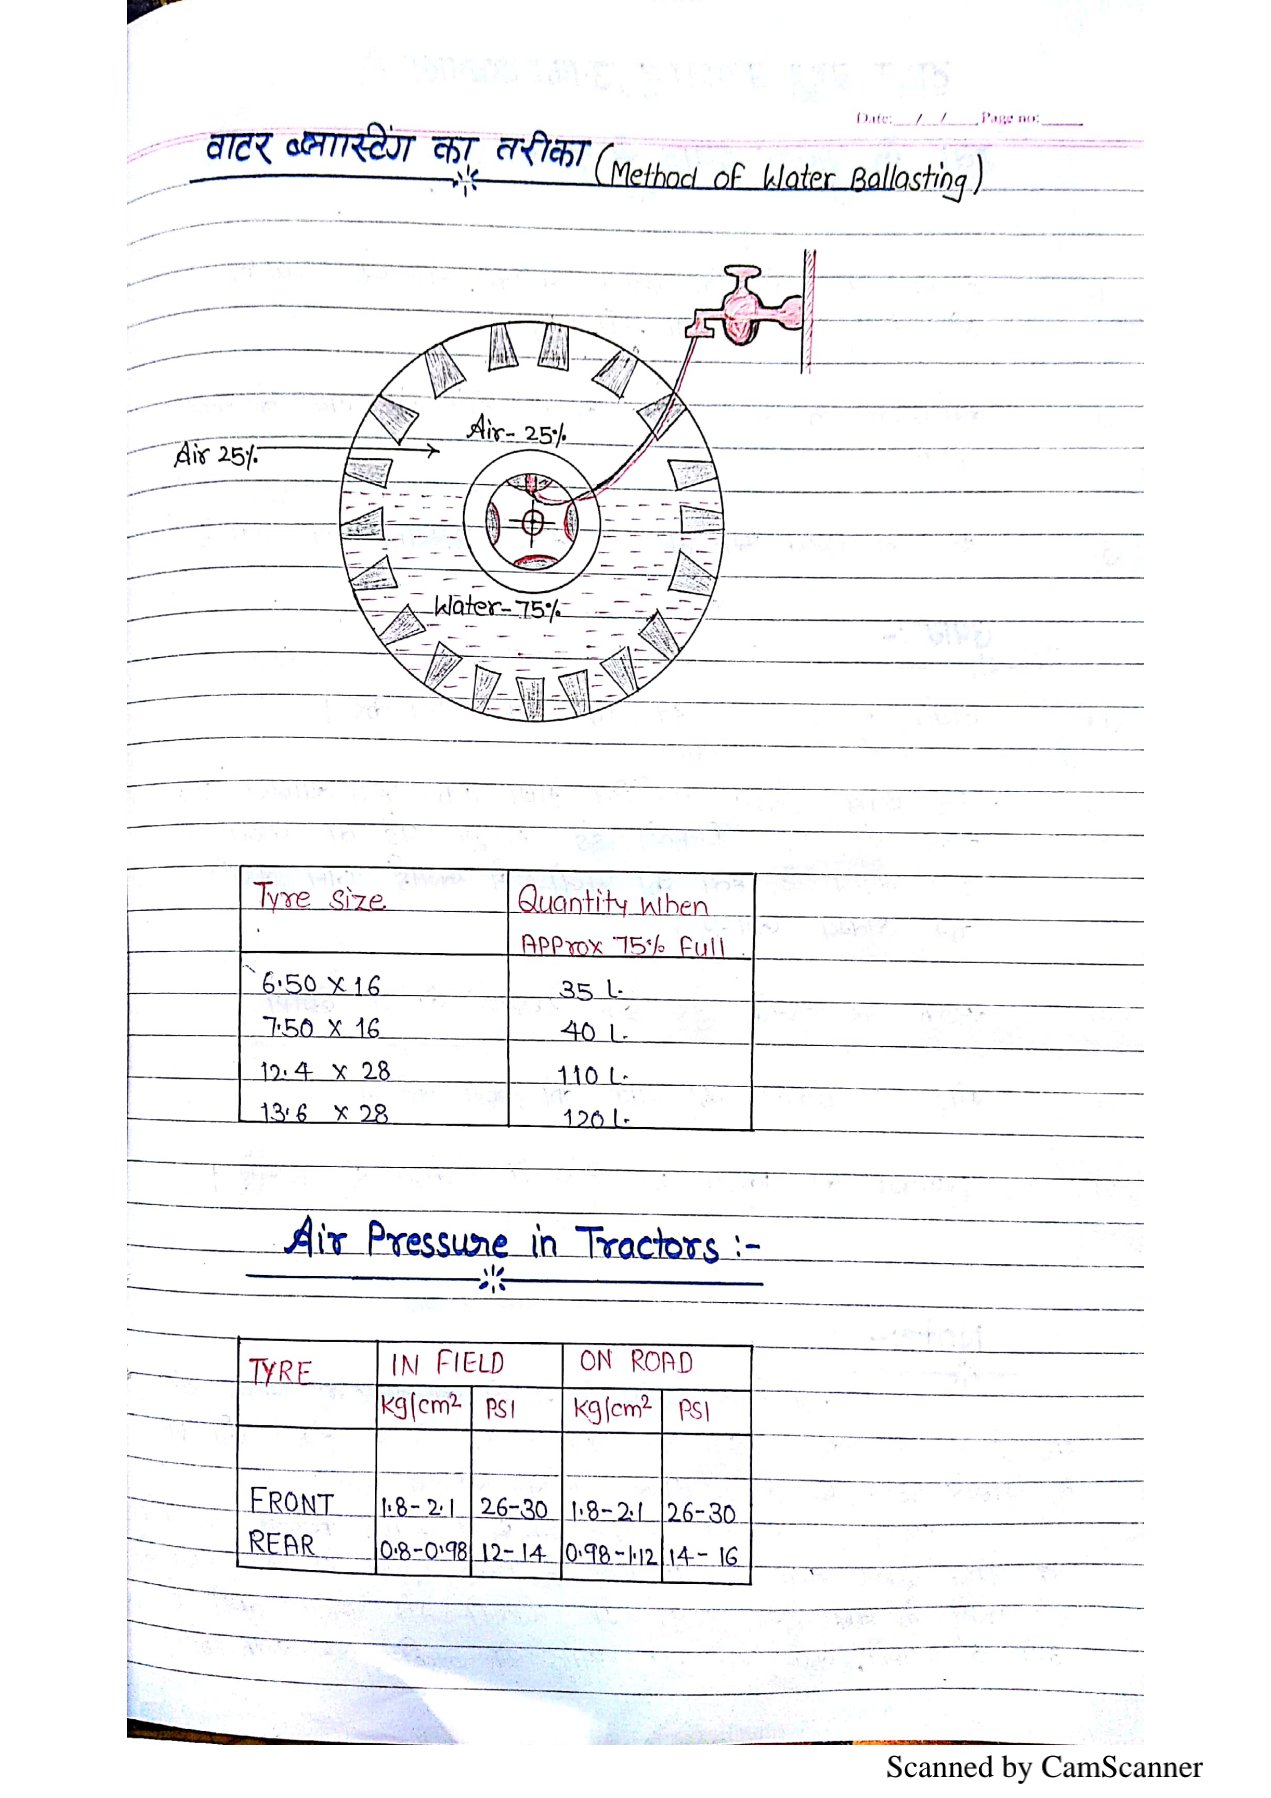 Date: __/__/__ Page no: ____
वाटर ब्लास्टिंग का तरीका (Method of Water Ballasting)
Air - 25%
Air 25%
Water - 75%
Tyre Size Quantity When
Approx 75% Full
6.50 x 16 35 L.
7.50 x 16 40 L.
12.4 x 28 110 L.
13.6 x 28 120 L.
Air Pressure in Tractors :-
TYRE IN FIELD ON ROAD
kg/cm² PSI kg/cm² PSI
FRONT 1.8-2.1 26-30 1.8-2.1 26-30
REAR 0.8-0.98 12-14 0.98-1.12 14-16
Scanned by CamScanner